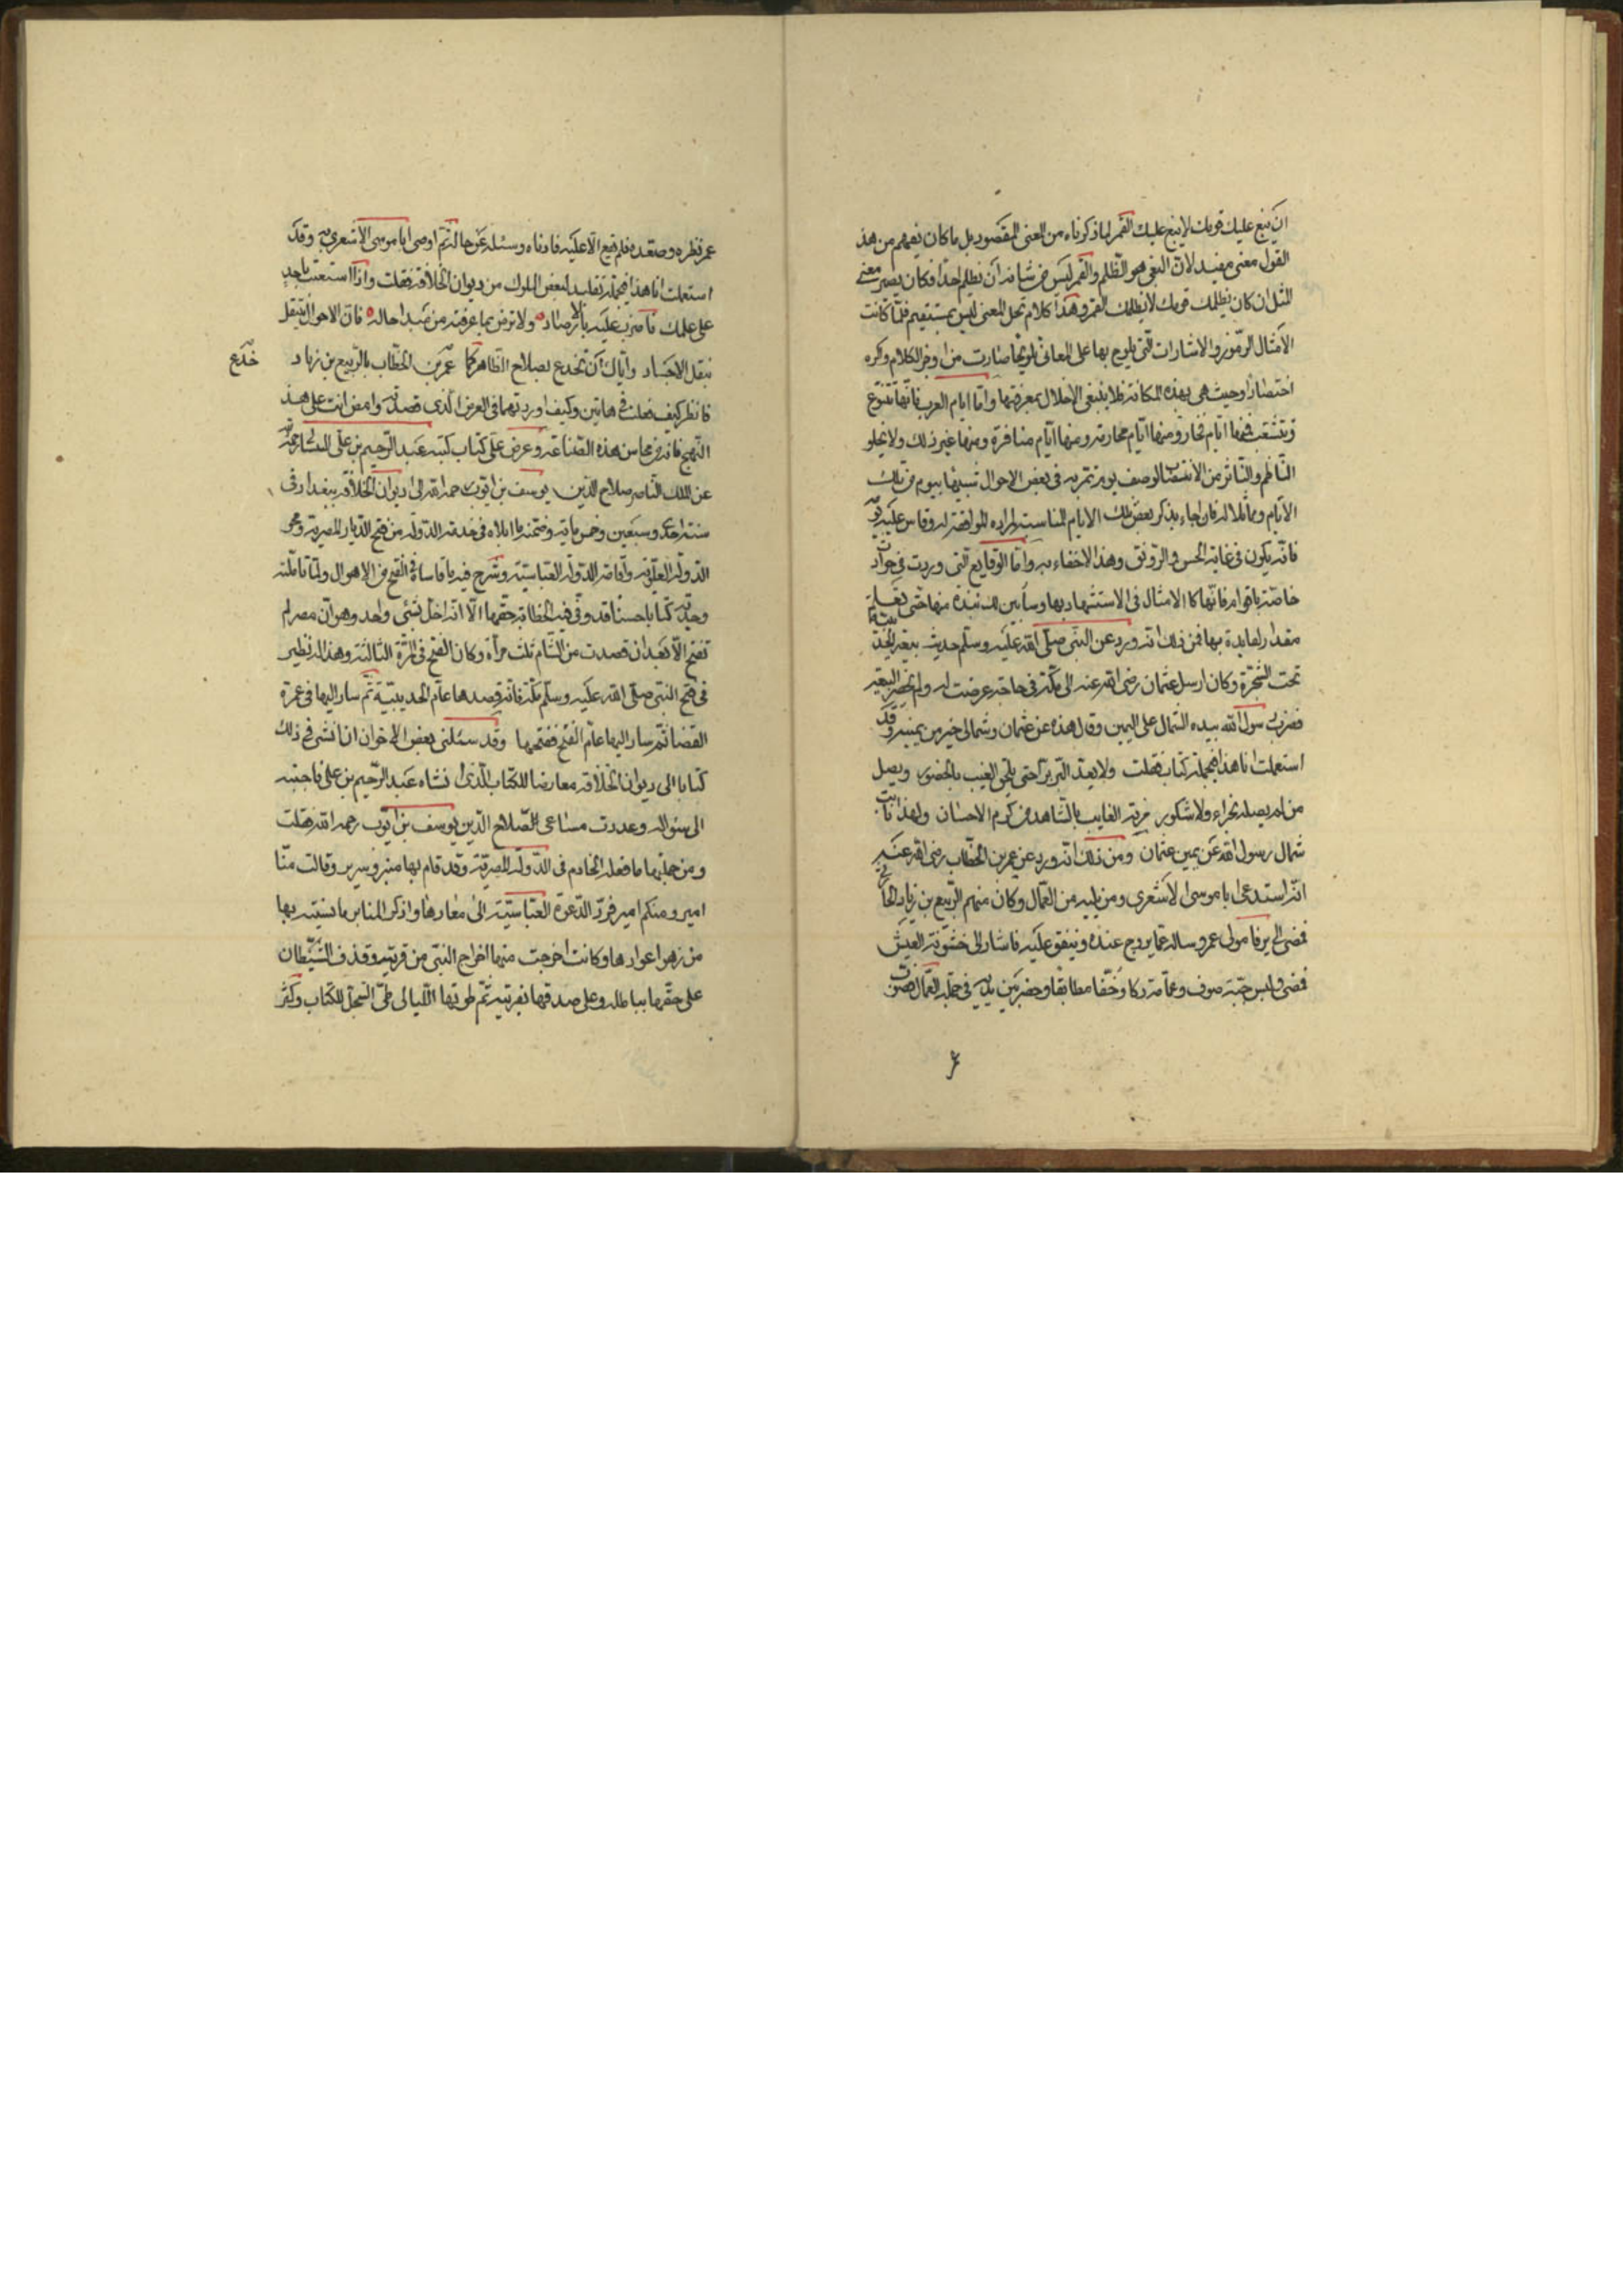 ان يبغ عليك قومك لا يبغ عليك القمر لما ذكرناه من المعنى المقصود بل ما كان يفهم من هذ
القول معنى مفيد لان البغي هو الظلم والقمر ليس من شانه ان يظلم احدا فكان يصير معنى
المثل ان كان يظلمك قومك لا يظلمك القمر وهذا كلام مخل المعنى ليس بمستقيم فلما كانت
الامثال كالرموز والاشارات التي يلوح بها على المعاني تلويحا صارت من اوجز الكلام واكثره
اختصارا وحيث هي بهذه المكانة فلا ينبغي الاخلال بمعرفتها واما ايام العرب فانها تتنوع
وتتشعب فمنها ايام فخار ومنها ايام محاربة ومنها ايام منافرة ومنها غير ذلك ولا يخلو
الناظم والناثر من الانتصاب لوصف يوم يمر به في بعض الاحوال شبيها بيوم من تلك
الايام ومماثلا له فان جاء بذكر بعض تلك الايام المناسب لمراده الموافقة له وقاس عليه
فانه يكون في غاية الحسن والرونق وهذا لا خفاء به واما الوقايع التي وردت في حوادث
خاصة باقوام فانها كالامثال في الاستشهاد بها وسأبين لك نبذة منها حتى تعلم
مقدار الفايدة بها فمن ذلك انه ورد عن النبي صلى الله عليه وسلم حديث بيعة الحديبية
تحت الشجرة وكان ارسل عثمان رضي الله عنه الى مكة في حاجة عرضت له ولم يحضر البيعة
فضرب رسول الله بيده الشمال على اليمين وقال هذه عن عثمان وشمالي خير من يمينه وقد
استعملت انا هذا في جملة كتاب فقلت ولا يعد البر برا حتى يلحق الغيب بالحضور ويصل
من لم يصله بجزاء ولا شكور فزية الغايب بالشاهد من كرم الاحسان ولهذا نابت
شمال رسول الله عن يمين عثمان ومن ذلك انه ورد عن عمر بن الخطاب رضي الله عنه
انه استدعى ابا موسى الاشعري ومن يليه من العمال وكان منهم الربيع بن زياد الحا
فمضى الى يرفا مولى عمر وساله عما يروج عنده وينفق عليه فاشار الى خشونة العيش
فمضى ولبس جبة صوف وعمامة دكا وخفا مطابقا وحضر بين يديه في جملة العمال فصوب
عمر نظره وصعده فلم يقع الا عليه فادناه وسئله عن حاله ثم اوصى ابا موسى الاشعري به وقد
استعملت انا هذا في جملة تقليد لبعض الملوك من ديوان الخلافة فقلت واذا استعنت باحد
على عملك فاضرب عليه بالارصاد ولا ترض بما عرفته من مبدا حاله فان الاحوال تتنقل
تنقل الاجساد واياك ان تخدع بصلاح الظاهر كما خدع عمر بن الخطاب بالربيع بن زياد
فانظر كيف فعلت في هاتين وكيف اوردتهما في الغرض الذي قصدته وامض انت على هذ
النهج فانه من محاسن هذه الصناعة وعرض علي كتاب كتبه عبد الرحيم بن علي البيساني رحمه
عن الملك الناصر صلاح الدين يوسف بن ايوب رحمه الله الى ديوان الخلافة ببغداد في
سنة احدى وسبعين وخمس ماية وضمنه ما ابلاه في خدمة الدولة من فتح الديار المصرية ومحو
الدولة العلوية واقامة الدولة العباسية وشرح فيه ما قاساه في الفتح من الاهوال ولما تاملته
وجدته كتابا حسنا قد وفى فيه الخطابة حقها الا انه اخل بشئ واحد وهو ان مصر لم
تفتح الا بعد ان قصدت من الشام ثلث مراة وكان الفتح في المرة الثالثة وهذا له نظير
في فتح النبي صلى الله عليه وسلم مكة فانه قصدها عام الحديبية ثم سار اليها في عمرة
القضا ثم سار اليها عام الفتح ففتحها وقد سئلني بعض الاخوان ان انشئ في ذلك
كتابا الى ديوان الخلافة معارضا للكتاب الذي انشاه عبد الرحيم بن علي فاجبته
الى سؤاله وعددت مساعي الصلاح الدين يوسف بن ايوب رحمه الله فقلت
ومن جملتها ما فعله الخادم في الدولة المصرية وقد قام بها منبر وسرير وقالت منا
امير ومنكم امير فرد الدعوة العباسية الى معادها واذكر المنابر ما نسيته بها
من زهو اعوادها وكانت اخرجت منها اخراج النبي من قريته وقذف الشيطان
على حقها بباطله وعلى صدقها بفريته ثم طوتها الليالي طي السجل للكتاب وكثر